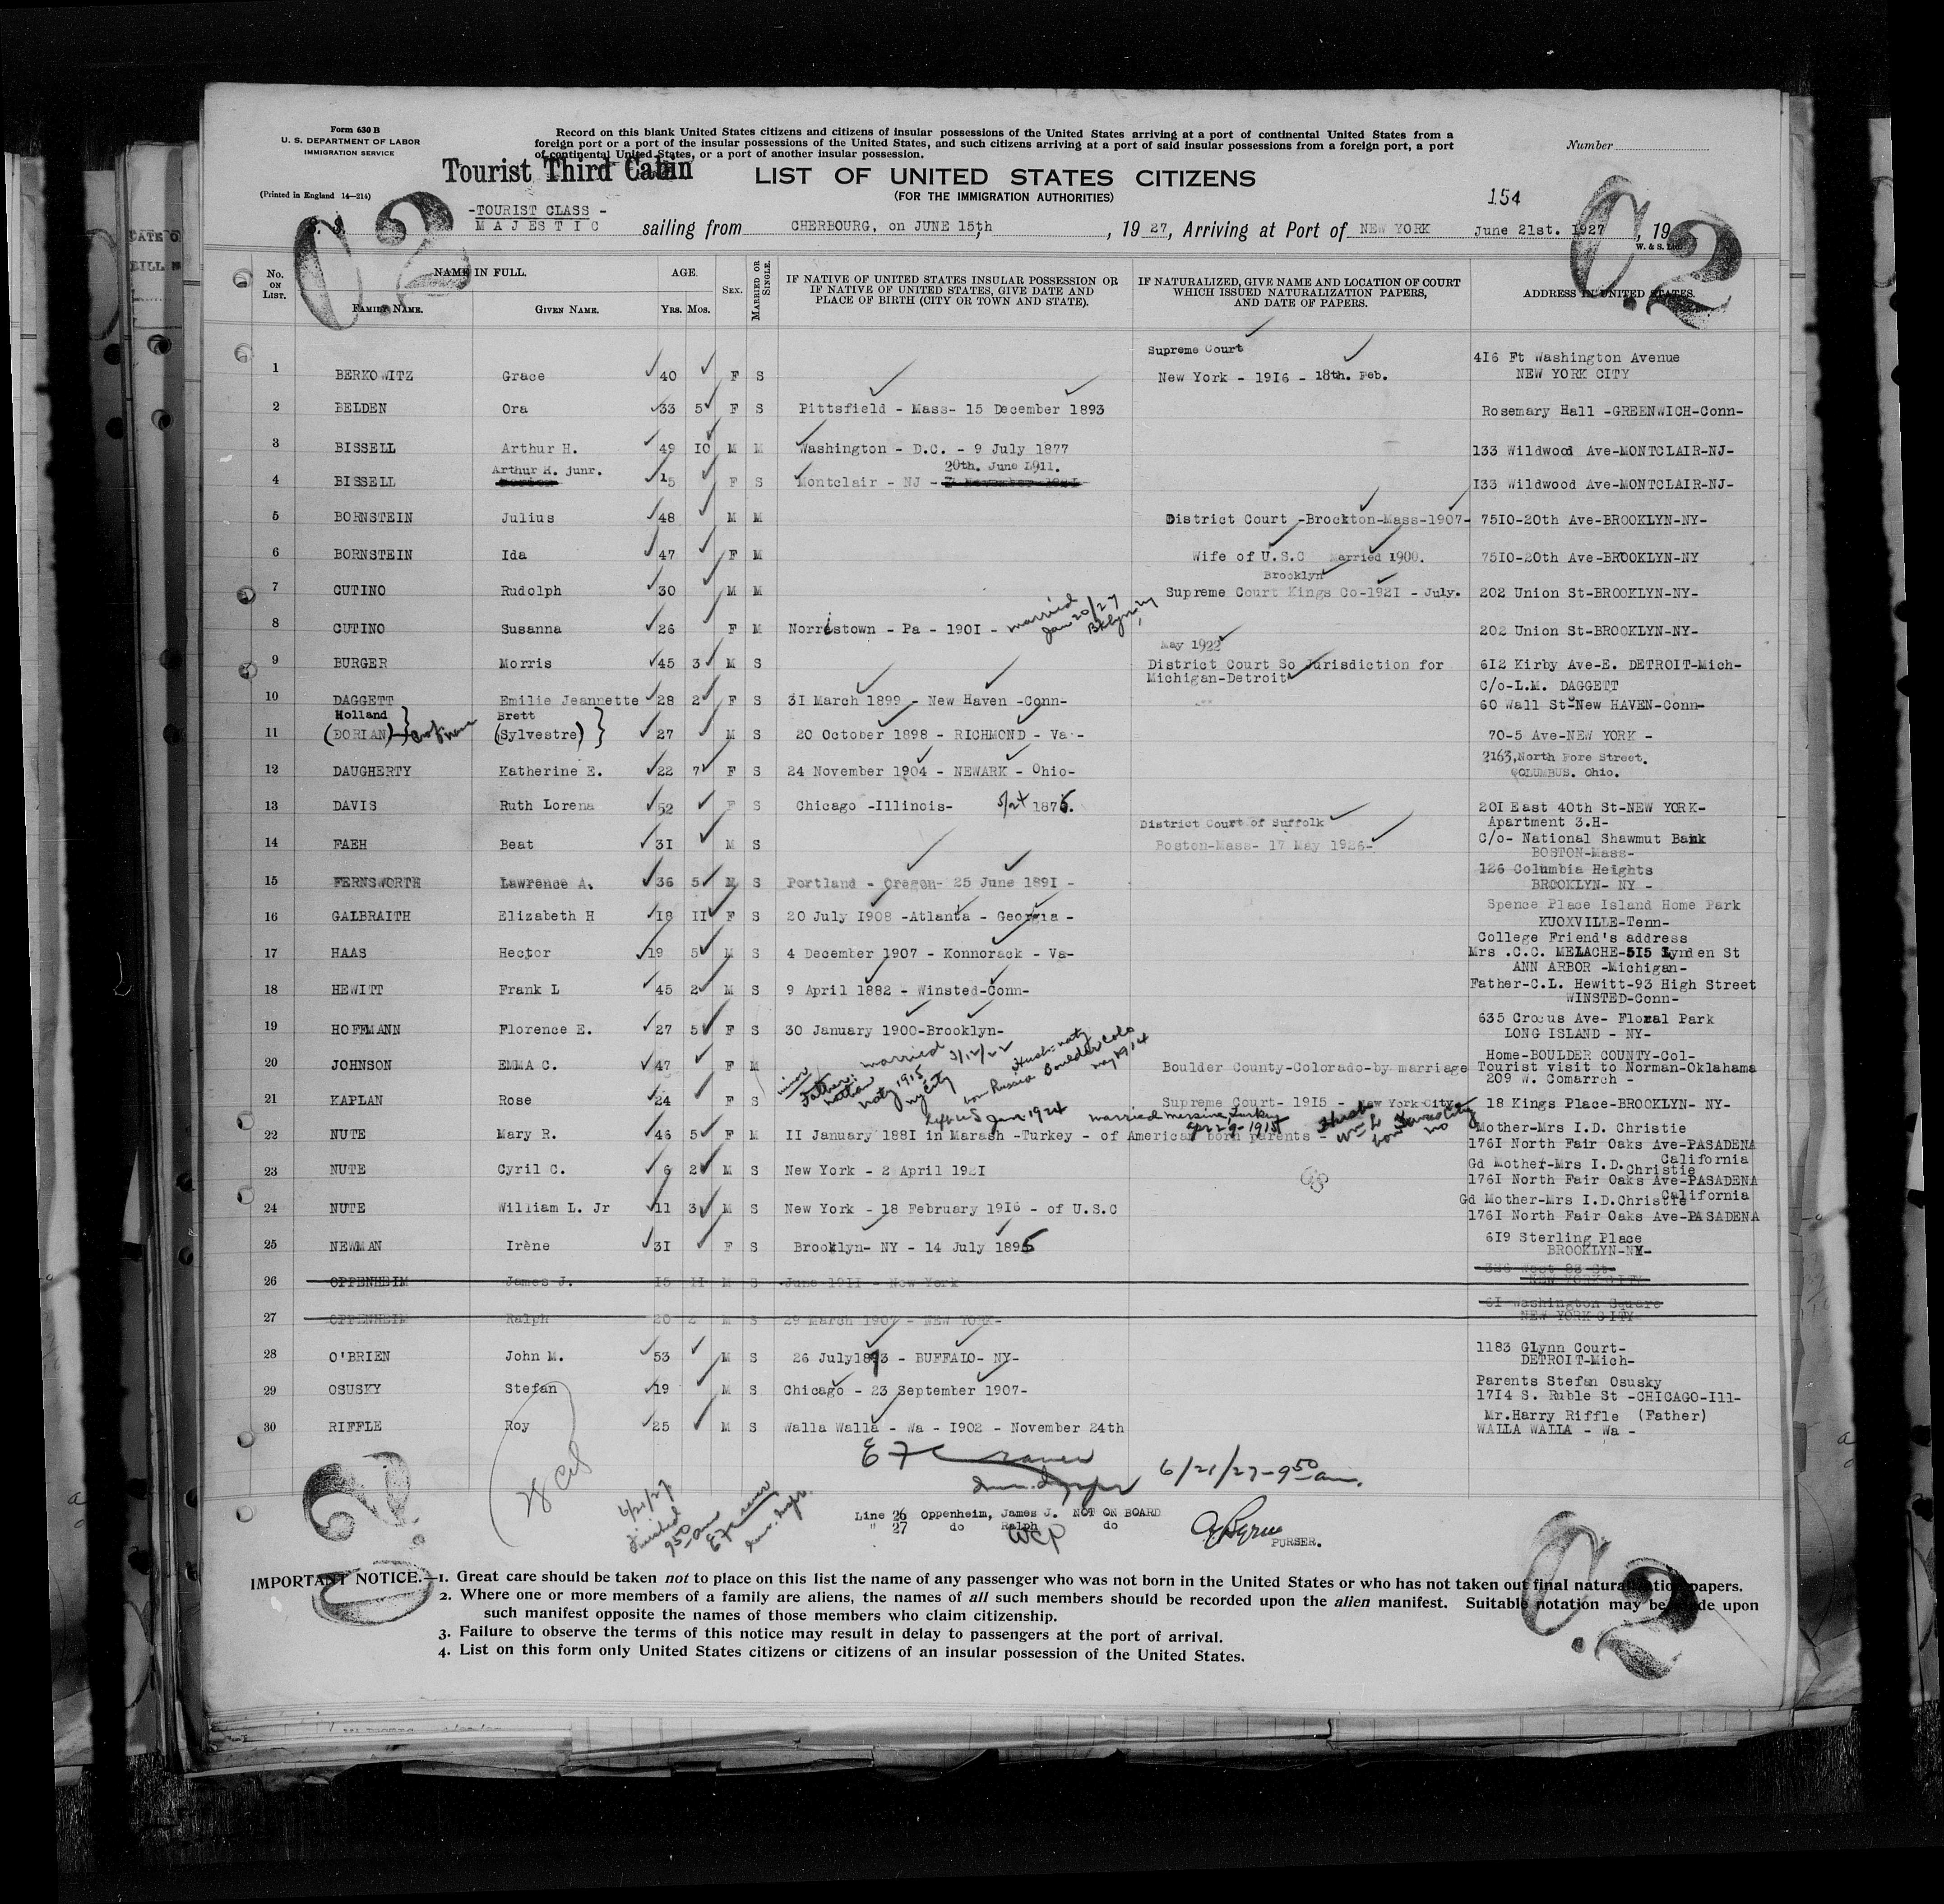 Form 630 B
U. S. DEPARTMENT OF LABOR
IMMIGRATION SERVICE
(Printed in England 14—214)
Record on this blank United States citizens and citizens of insular possessions of the United States arriving at a port of continental United States from a
foreign port or a port of the insular possessions of the United States, and such citizens arriving at a port of said insular possessions from a foreign port, a port
of continental United States, or a port of another insular possession.
Number
Tourist Third Cabin
LIST OF UNITED STATES CITIZENS
(FOR THE IMMIGRATION AUTHORITIES)
154
C.2
C.2
-TOURIST CLASS -
S. S. MAJESTIC sailing from CHERBOURG, on JUNE 15th, 1927, Arriving at Port of NEW YORK June 21st. 1927, 19
W. & S. Ltd.
No. ON LIST. NAME IN FULL. AGE. SEX. MARRIED OR SINGLE. IF NATIVE OF UNITED STATES INSULAR POSSESSION OR IF NATIVE OF UNITED STATES, GIVE DATE AND PLACE OF BIRTH (CITY OR TOWN AND STATE). IF NATURALIZED, GIVE NAME AND LOCATION OF COURT WHICH ISSUED NATURALIZATION PAPERS, AND DATE OF PAPERS. ADDRESS IN UNITED STATES.
FAMILY NAME. GIVEN NAME. YRS. MOS.
1 BERKOWITZ Grace 40 F S Supreme Court New York - 1916 - 18th. Feb. 416 Ft Washington Avenue NEW YORK CITY
2 BELDEN Ora 33 5 F S Pittsfield - Mass- 15 December 1893 Rosemary Hall -GREENWICH-Conn-
3 BISSELL Arthur H. 49 10 M M Washington - D.C. - 9 July 1877 133 Wildwood Ave-MONTCLAIR-NJ-
4 BISSELL Arthur H. junr. 15 F S Montclair - NJ - 20th. June 1911. 133 Wildwood Ave-MONTCLAIR-NJ-
5 BORNSTEIN Julius 48 M M District Court -Brockton-Mass-1907- 7510-20th Ave-BROOKLYN-NY-
6 BORNSTEIN Ida 47 F M Wife of U.S.C Married 1900. 7510-20th Ave-BROOKLYN-NY
7 CUTINO Rudolph 30 M M Brooklyn Supreme Court Kings Co-1921 - July. 202 Union St-BROOKLYN-NY-
8 CUTINO Susanna 26 F M Norristown - Pa - 1901 - married Jan 20/27 Bklyn, ny 202 Union St-BROOKLYN-NY-
9 BURGER Morris 45 3 M S May 1922 District Court So Jurisdiction for Michigan-Detroit 612 Kirby Ave-E. DETROIT-Mich-
10 DAGGETT Emilie Jeannette 28 2 F S 31 March 1899 - New Haven -Conn- C/o-L.M. DAGGETT 60 Wall St-New HAVEN-Conn-
11 Holland (DORIAN) Brett (Sylvestre) 27 M S 20 October 1898 - RICHMOND - Va- 70-5 Ave-NEW YORK -
12 DAUGHERTY Katherine E. 22 7 F S 24 November 1904 - NEWARK - Ohio- 2163, North Fore Street. COLUMBUS. Ohio.
13 DAVIS Ruth Lorena 52 F S Chicago -Illinois- 5/24 1875. 201 East 40th St-NEW YORK- Apartment 3.H-
14 FAEH Beat 31 M S District Court of Suffolk Boston-Mass- 17 May 1926- C/o- National Shawmut Bank BOSTON-Mass-
15 FERNSWORTH Lawrence A. 36 5 M S Portland - Oregon- 25 June 1891 - 126 Columbia Heights BROOKLYN- NY -
16 GALBRAITH Elizabeth H 18 11 F S 20 July 1908 -Atlanta - Georgia - Spence Place Island Home Park KUOXVILLE-Tenn-
17 HAAS Hector 19 5 M S 4 December 1907 - Konnorack - Va- College Friend's address Mrs .C.C. MELACHE-515 Lynden St ANN ARBOR -Michigan-
18 HEWITT Frank L 45 2 M S 9 April 1882 - Winsted-Conn- Father-C.L. Hewitt-93 High Street WINSTED-Conn-
19 HOFFMANN Florence E. 27 5 F S 30 January 1900-Brooklyn- 635 Crocus Ave- Floral Park LONG ISLAND - NY-
20 JOHNSON EMMA C. 47 F M married 3/12/22 Boulder County-Colorado-by marriage Home-BOULDER COUNTY-Col- Tourist visit to Norman-Oklahama 209 W. Comarrch -
21 KAPLAN Rose 24 F S minor Father: Nathan naty 1915 ny City born Russia Supreme Court- 1915 - New York City- 18 Kings Place-BROOKLYN- NY-
22 NUTE Mary R. 46 5 F M 11 January 1881 in Marash -Turkey - of American born parents - Left US Jan. 1924 married Mersine, Turkey Mother-Mrs I.D. Christie 1761 North Fair Oaks Ave-PASADENA California
23 NUTE Cyril C. 6 2 M S New York - 2 April 1921 Gd Mother-Mrs I.D.Christie 1761 North Fair Oaks Ave-PASADENA California
24 NUTE William L. Jr 11 3 M S New York - 18 February 1916 - of U.S.C Gd Mother-Mrs I.D.Christie 1761 North Fair Oaks Ave-PASADENA
25 NEWMAN Irène 31 F S Brooklyn- NY - 14 July 1895 619 Sterling Place BROOKLYN-NY-
26 OPPENHEIM James J. 15 11 M S June 1911 - New York 326 West 83 St- NEW YORK CITY
27 OPPENHEIM Ralph 20 2 M S 29 March 1907 - NEW YORK- 61 Washington Square NEW YORK CITY
28 O'BRIEN John M. 53 M S 26 July1873 - BUFFALO- NY- 1183 Glynn Court- DETROIT-Mich-
29 OSUSKY Stefan 19 M S Chicago - 23 September 1907- Parents Stefan Osusky 1714 S. Ruble St -CHICAGO-Ill-
30 RIFFLE Roy 25 M S Walla Walla - Wa - 1902 - November 24th Mr.Harry Riffle (Father) WALLA WALLA - Wa -
6/21/27-9 50 am.
6/21/27
Finished
9 50 am
Line 26 Oppenheim, James J. NOT ON BOARD
" 27 do Ralph do
PURSER.
C.2
C.2
IMPORTANT NOTICE.—1. Great care should be taken not to place on this list the name of any passenger who was not born in the United States or who has not taken out final naturalization papers.
2. Where one or more members of a family are aliens, the names of all such members should be recorded upon the alien manifest. Suitable notation may be made upon
such manifest opposite the names of those members who claim citizenship.
3. Failure to observe the terms of this notice may result in delay to passengers at the port of arrival.
4. List on this form only United States citizens or citizens of an insular possession of the United States.